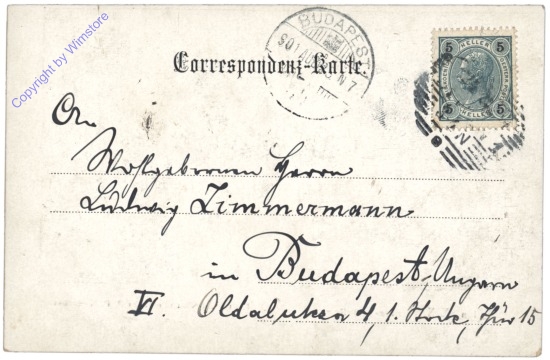 Copyright by Wimstore
BUDAPEST
5 HELLER 5
5 HELLER 5
Correspondenz-Karte.
An
Wohlgebornen Herrn
Ludwig Zimmermann
in Budapest, Ungarn
VI. Oldalutcza 4, 1. Stock, Thür 15